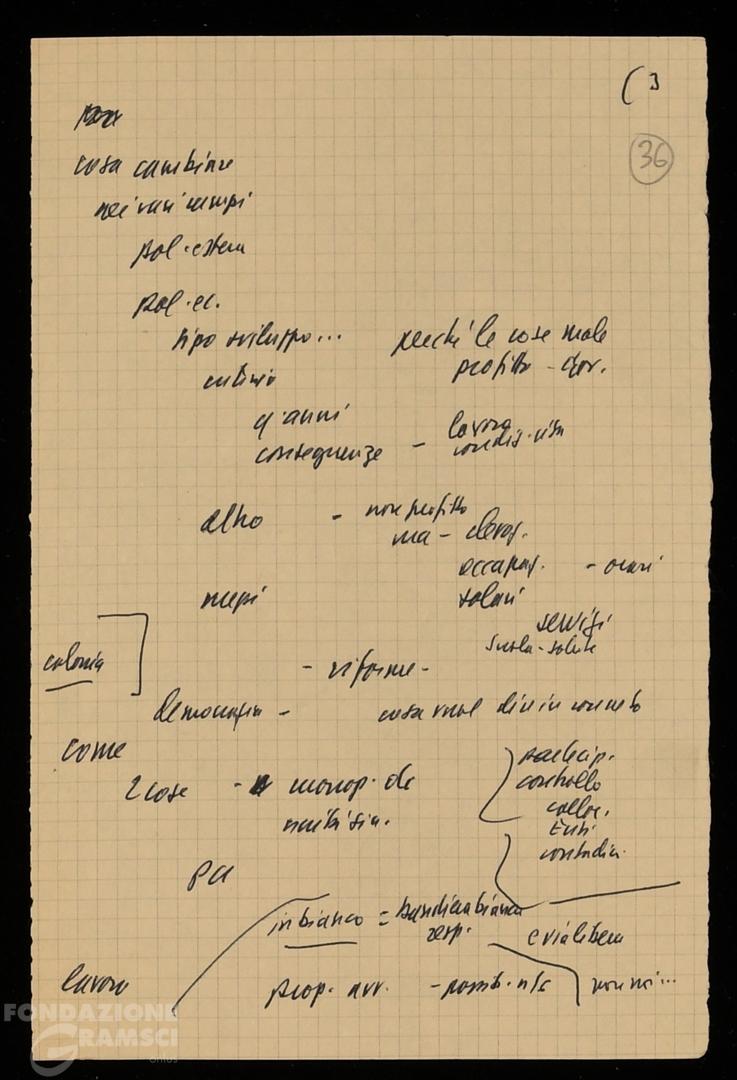 (3
36
cosa cambiare
nei vari campi
pol. estera
pol. ec.
tipo sviluppo... perché le cose male
profitto -
anni
conseguenze - lavoro
condiz. vita
altro - non profitto
ma -
occupaz. - orari
mezzi salari
servizi
scuola - salute
colonia - riforme -
democrazia - cosa vuol dire in concreto
come particip.
2 cose - monop. dc controllo
colloc.
Enti
contadin.
PCI
in bianco = bandiera bianca
resp. e via libera
lavoro prop. avv. -
FONDAZIONE
GRAMSCI
onlus